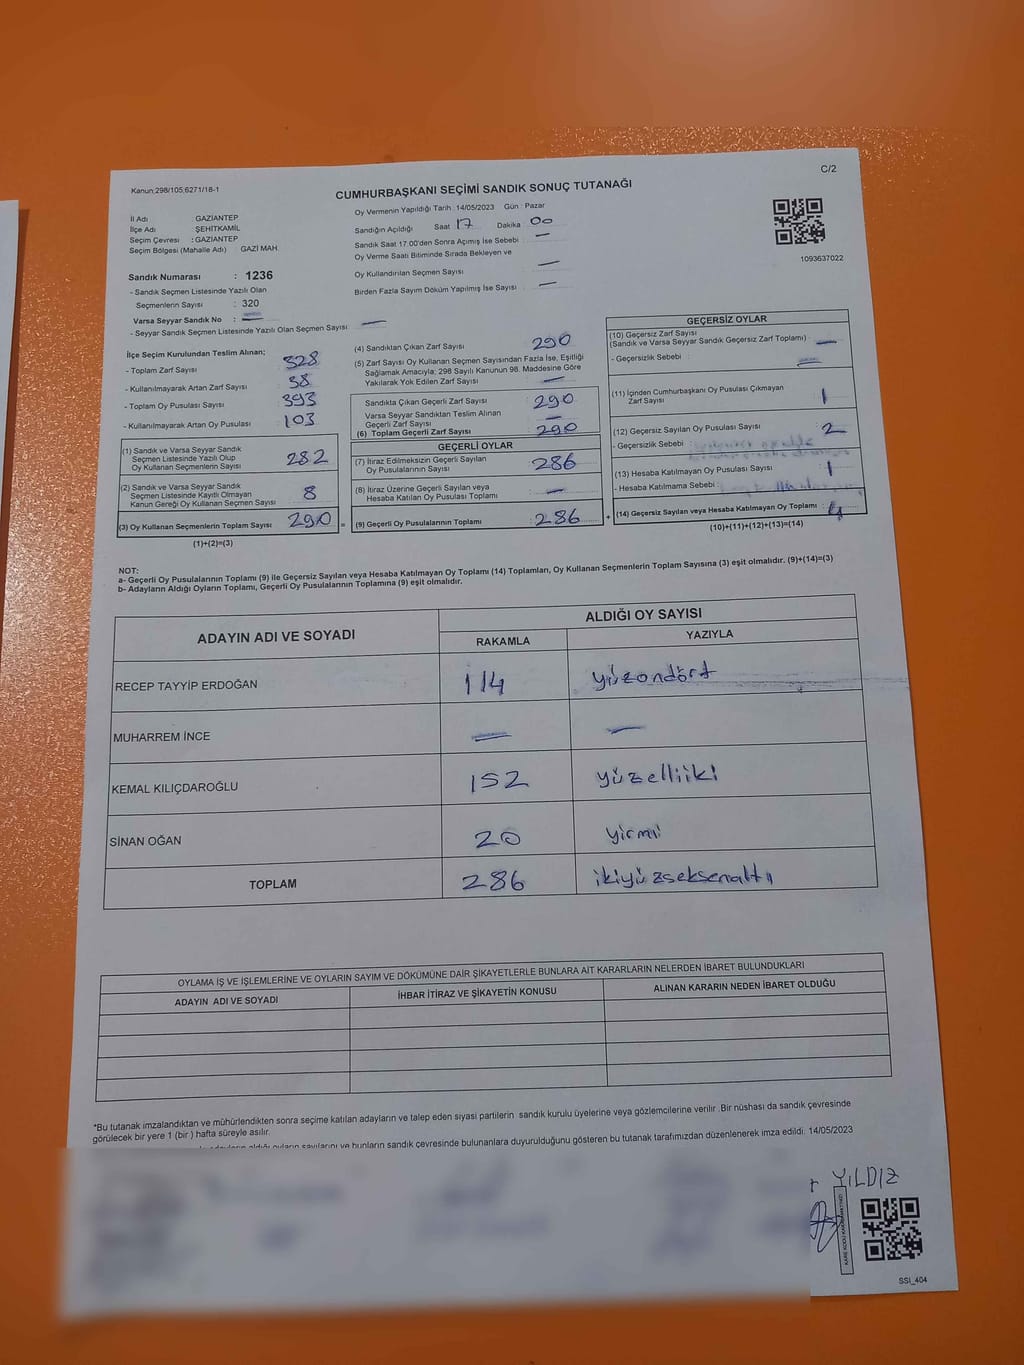 Kanun;298/105;6271/18-1
C/2
CUMHURBAŞKANI SEÇİMİ SANDIK SONUÇ TUTANAĞI
İl Adı : GAZİANTEP
İlçe Adı : ŞEHİTKAMİL
Seçim Çevresi : GAZİANTEP
Seçim Bölgesi (Mahalle Adı) GAZİ MAH.
Oy Vermenin Yapıldığı Tarih : 14/05/2023 Gün : Pazar
Sandığın Açıldığı Saat 17 Dakika 00
Sandık Saat 17.00'den Sonra Açımış İse Sebebi —
Oy Verme Saati Bitiminde Sırada Bekleyen ve
Oy Kullandırılan Seçmen Sayısı —
Birden Fazla Sayım Döküm Yapılmış İse Sayısı —
1093637022
Sandık Numarası : 1236
- Sandık Seçmen Listesinde Yazılı Olan
Seçmenlerin Sayısı : 320
Varsa Seyyar Sandık No : —
- Seyyar Sandık Seçmen Listesinde Yazılı Olan Seçmen Sayısı —
İlçe Seçim Kurulundan Teslim Alınan;
- Toplam Zarf Sayısı 328
- Kullanılmayarak Artan Zarf Sayısı 38
- Toplam Oy Pusulası Sayısı 393
- Kullanılmayarak Artan Oy Pusulası 103
(1) Sandık ve Varsa Seyyar Sandık
Seçmen Listesinde Yazılı Olup
Oy Kullanan Seçmenlerin Sayısı 282
(2) Sandık ve Varsa Seyyar Sandık
Seçmen Listesinde Kayıtlı Olmayan
Kanun Gereği Oy Kullanan Seçmen Sayısı 8
(3) Oy Kullanan Seçmenlerin Toplam Sayısı 290 =
(1)+(2)=(3)
(4) Sandıktan Çıkan Zarf Sayısı 290
(5) Zarf Sayısı Oy Kullanan Seçmen Sayısından Fazla İse, Eşitliği
Sağlamak Amacıyla; 298 Sayılı Kanunun 98. Maddesine Göre
Yakılarak Yok Edilen Zarf Sayısı —
Sandıkta Çıkan Geçerli Zarf Sayısı 290
Varsa Seyyar Sandıktan Teslim Alınan
Geçerli Zarf Sayısı —
(6) Toplam Geçerli Zarf Sayısı 290
GEÇERLİ OYLAR
(7) İtiraz Edilmeksizin Geçerli Sayılan
Oy Pusulalarının Sayısı 286
(8) İtiraz Üzerine Geçerli Sayılan veya
Hesaba Katılan Oy Pusulası Toplamı —
(9) Geçerli Oy Pusulalarının Toplamı 286 +
GEÇERSİZ OYLAR
(10) Geçersiz Zarf Sayısı
(Sandık ve Varsa Seyyar Sandık Geçersiz Zarf Toplamı) —
- Geçersizlik Sebebi : —
(11) İçinden Cumhurbaşkanı Oy Pusulası Çıkmayan
Zarf Sayısı 1
(12) Geçersiz Sayılan Oy Pusulası Sayısı 2
- Geçersizlik Sebebi
(13) Hesaba Katılmayan Oy Pusulası Sayısı 1
- Hesaba Katılmama Sebebi
(14) Geçersiz Sayılan veya Hesaba Katılmayan Oy Toplamı : 4
(10)+(11)+(12)+(13)=(14)
NOT:
a- Geçerli Oy Pusulalarının Toplamı (9) ile Geçersiz Sayılan veya Hesaba Katılmayan Oy Toplamı (14) Toplamları, Oy Kullanan Seçmenlerin Toplam Sayısına (3) eşit olmalıdır. (9)+(14)=(3)
b- Adayların Aldığı Oyların Toplamı, Geçerli Oy Pusulalarının Toplamına (9) eşit olmalıdır.
ADAYIN ADI VE SOYADI
ALDIĞI OY SAYISI
RAKAMLA YAZIYLA
RECEP TAYYİP ERDOĞAN 114 yüzondört
MUHARREM İNCE — —
KEMAL KILIÇDAROĞLU 152 yüzelliiki
SİNAN OĞAN 20 yirmi
TOPLAM 286 ikiyüzseksenaltı
OYLAMA İŞ VE İŞLEMLERİNE VE OYLARIN SAYIM VE DÖKÜMÜNE DAİR ŞİKAYETLERLE BUNLARA AİT KARARLARIN NELERDEN İBARET BULUNDUKLARI
ADAYIN ADI VE SOYADI İHBAR İTİRAZ VE ŞİKAYETİN KONUSU ALINAN KARARIN NEDEN İBARET OLDUĞU
*Bu tutanak imzalandıktan ve mühürlendikten sonra seçime katılan adayların ve talep eden siyasi partilerin sandık kurulu üyelerine veya gözlemcilerine verilir .Bir nüshası da sandık çevresinde
görülecek bir yere 1 (bir ) hafta süreyle asılır.
aldığı oyların sayılarını ve bunların sandık çevresinde bulunanlara duyurulduğunu gösteren bu tutanak tarafımızdan düzenlenerek imza edildi. 14/05/2023
YILDIZ
SSI_404